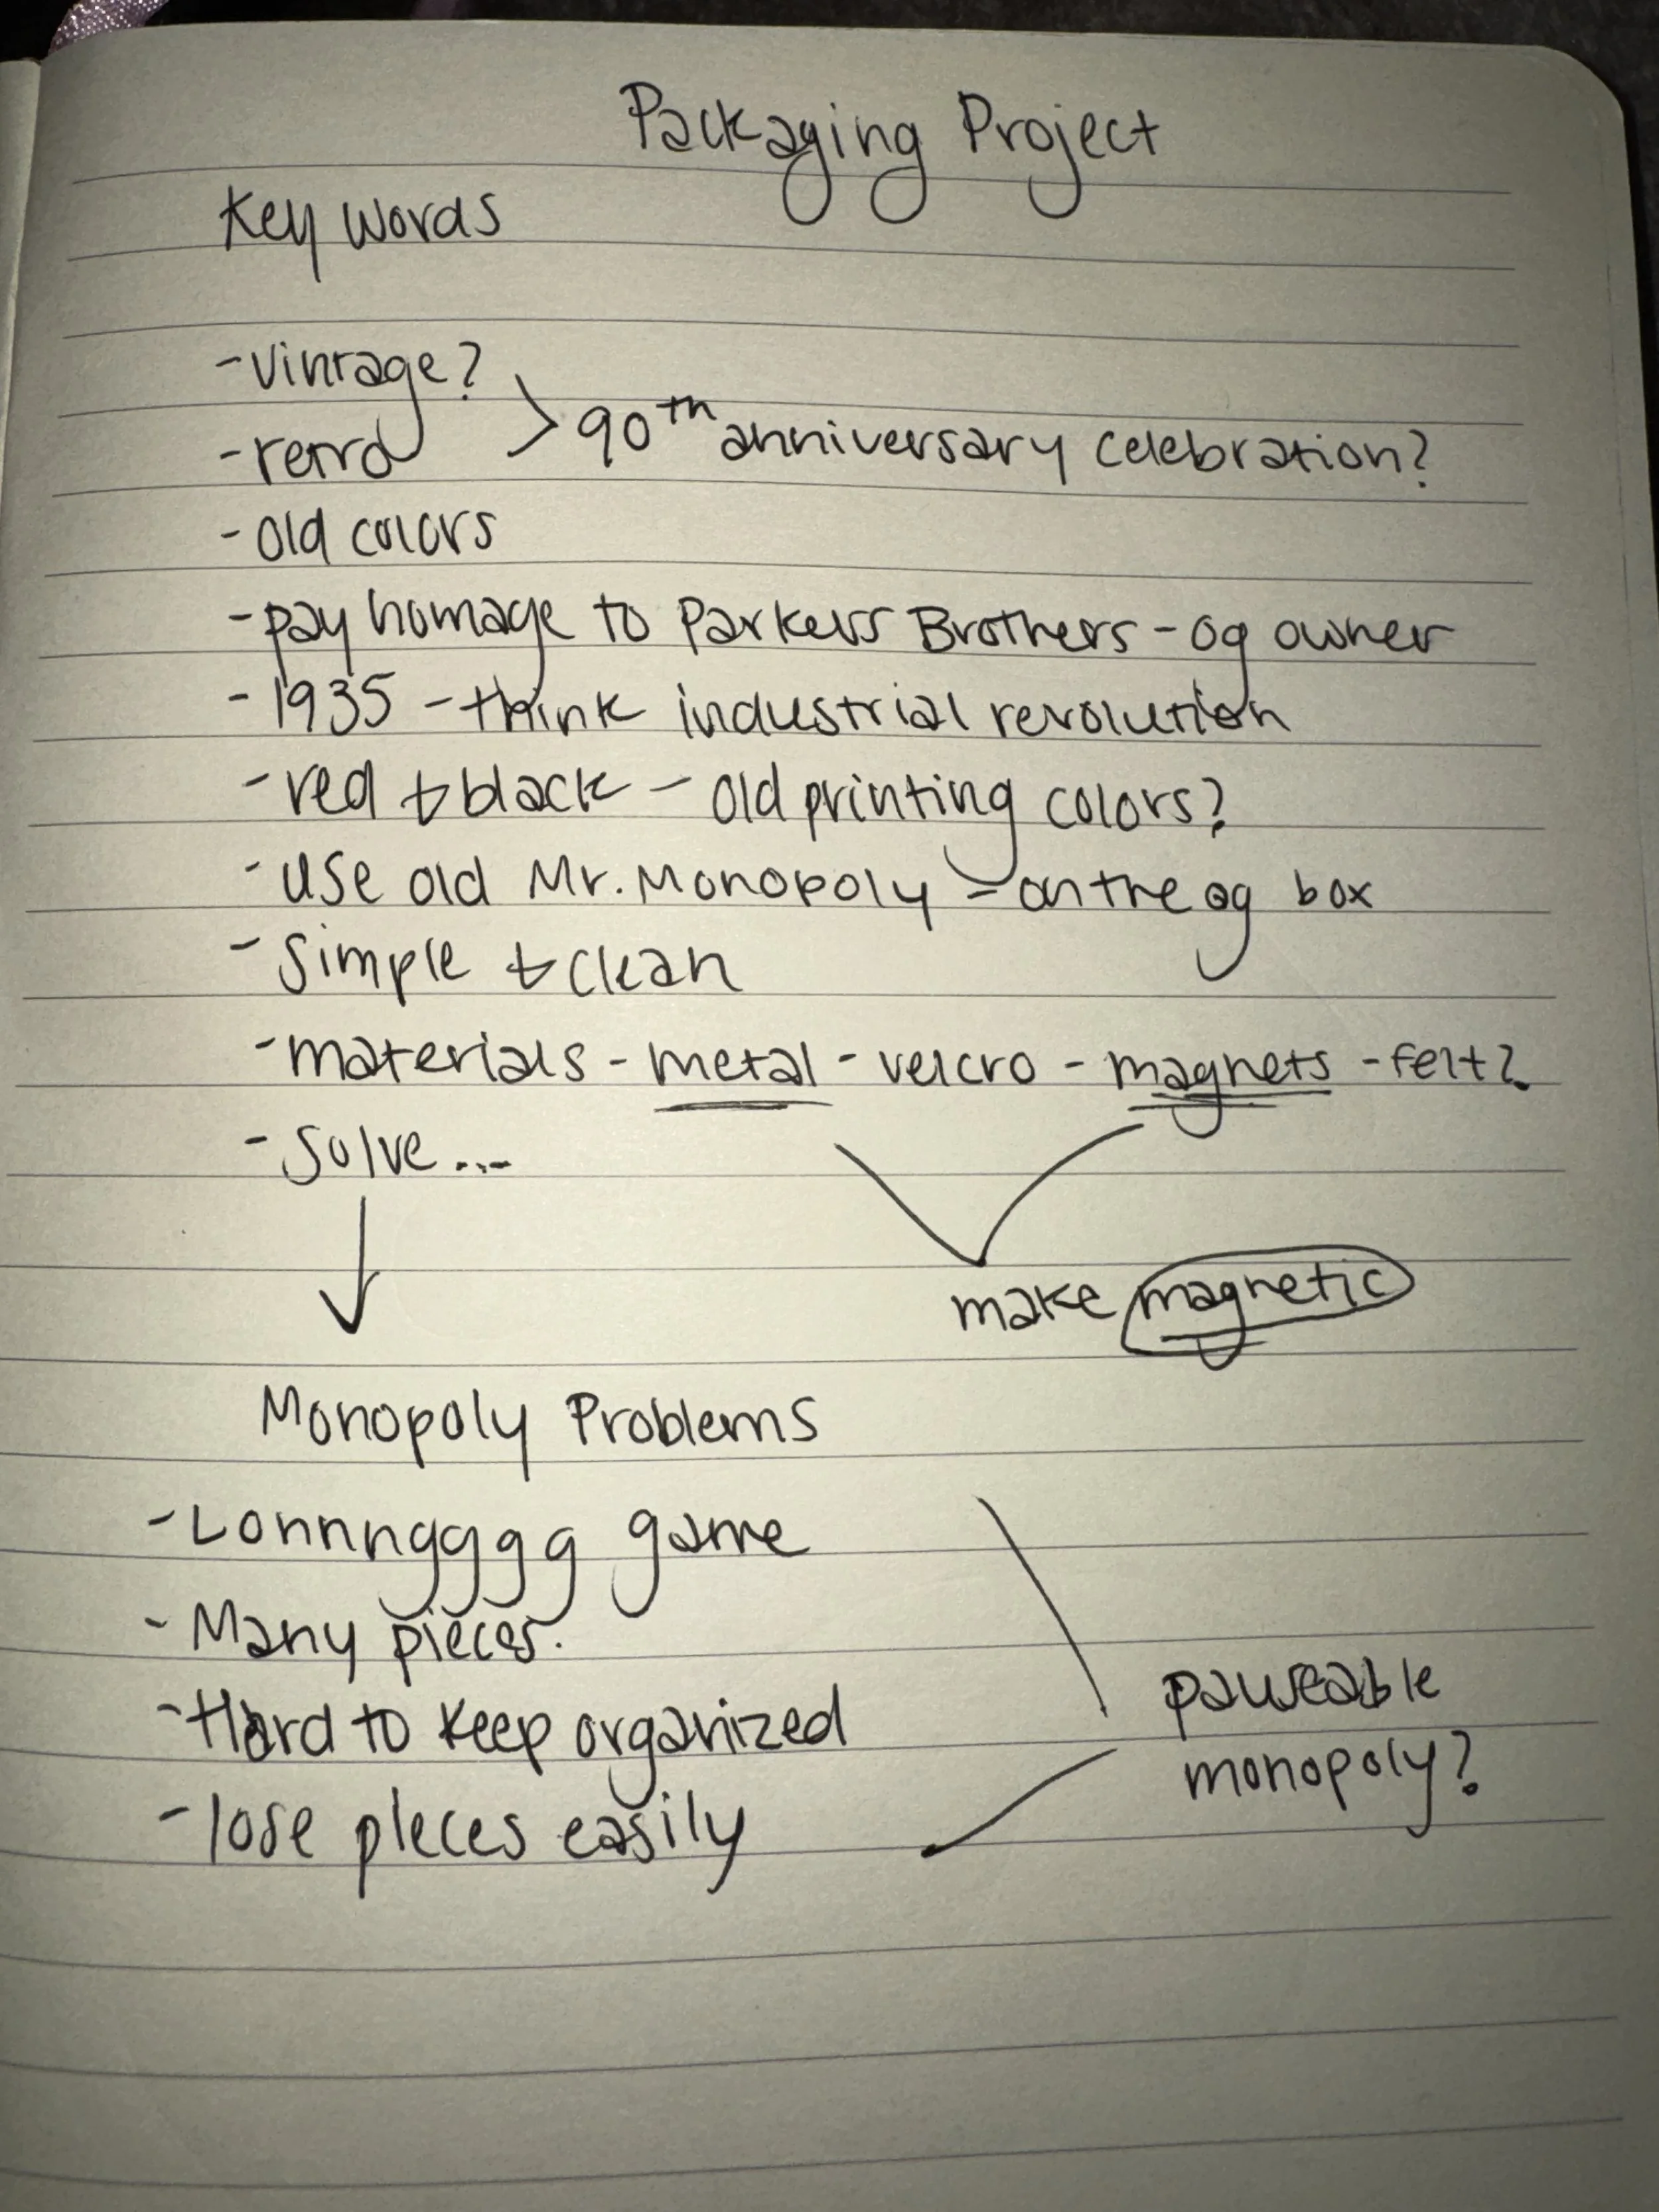 Packaging Project
Key Words
- Vintage?
- retro > 90th anniversary celebration?
- Old colors
- pay homage to Parkers Brothers - og owner
- 1935 - think industrial revolution
- red & black - old printing colors?
- use old Mr. Monopoly - on the og box
- Simple & clean
- materials - metal - velcro - magnets - felt?
- Solve...
make magnetic
Monopoly Problems
- Lonnngggg game
- Many pieces.
- Hard to keep organized
- lose pieces easily
pauseable
monopoly?